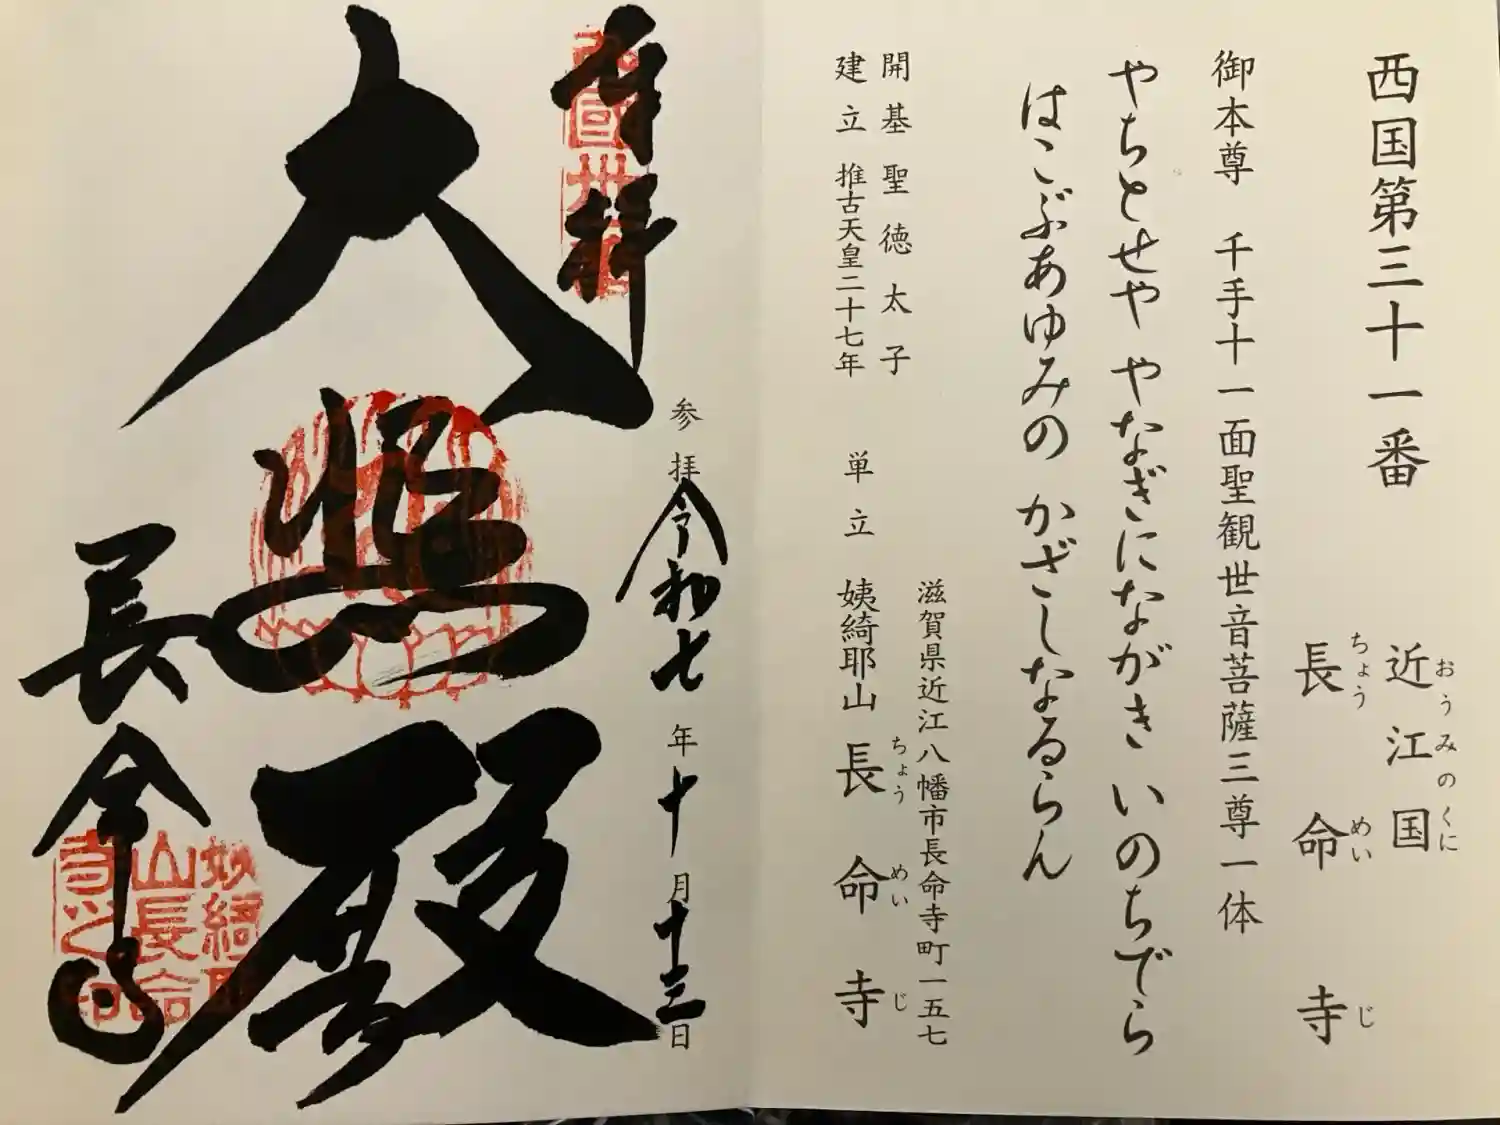 西国第三十一番
近江国
おうみのくに
長命寺
ちょうめいじ
御本尊 千手十一面聖観世音菩薩三尊一体
やちとせや やなぎにながき いのちでら
はこぶあゆみの かざしなるらん
開基聖徳太子
建立 推古天皇二十七年
滋賀県近江八幡市長命寺町一五七
単立 姨綺耶山 長命寺
ちょうめいじ
奉拝
参拝 令和七年十月十三日
大悲殿
長命寺